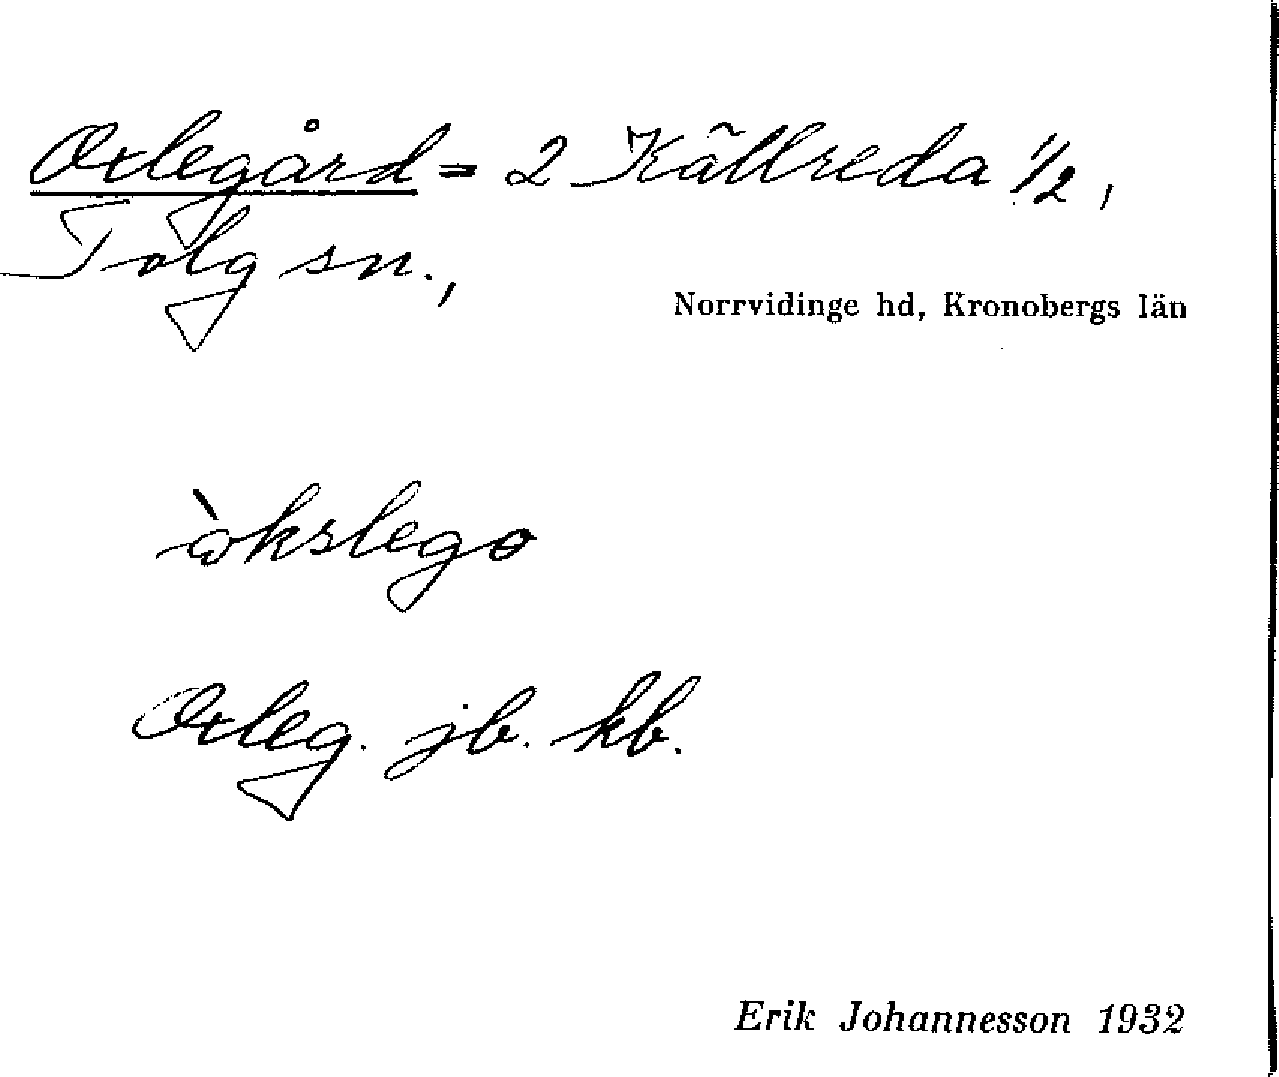 Oxlegård = 2 Källreda 1/2,
Tolg sn.,
Norrvidinge hd, Kronobergs län
ὼkslego
Oxleg. jb. kb.
Erik Johannesson 1932